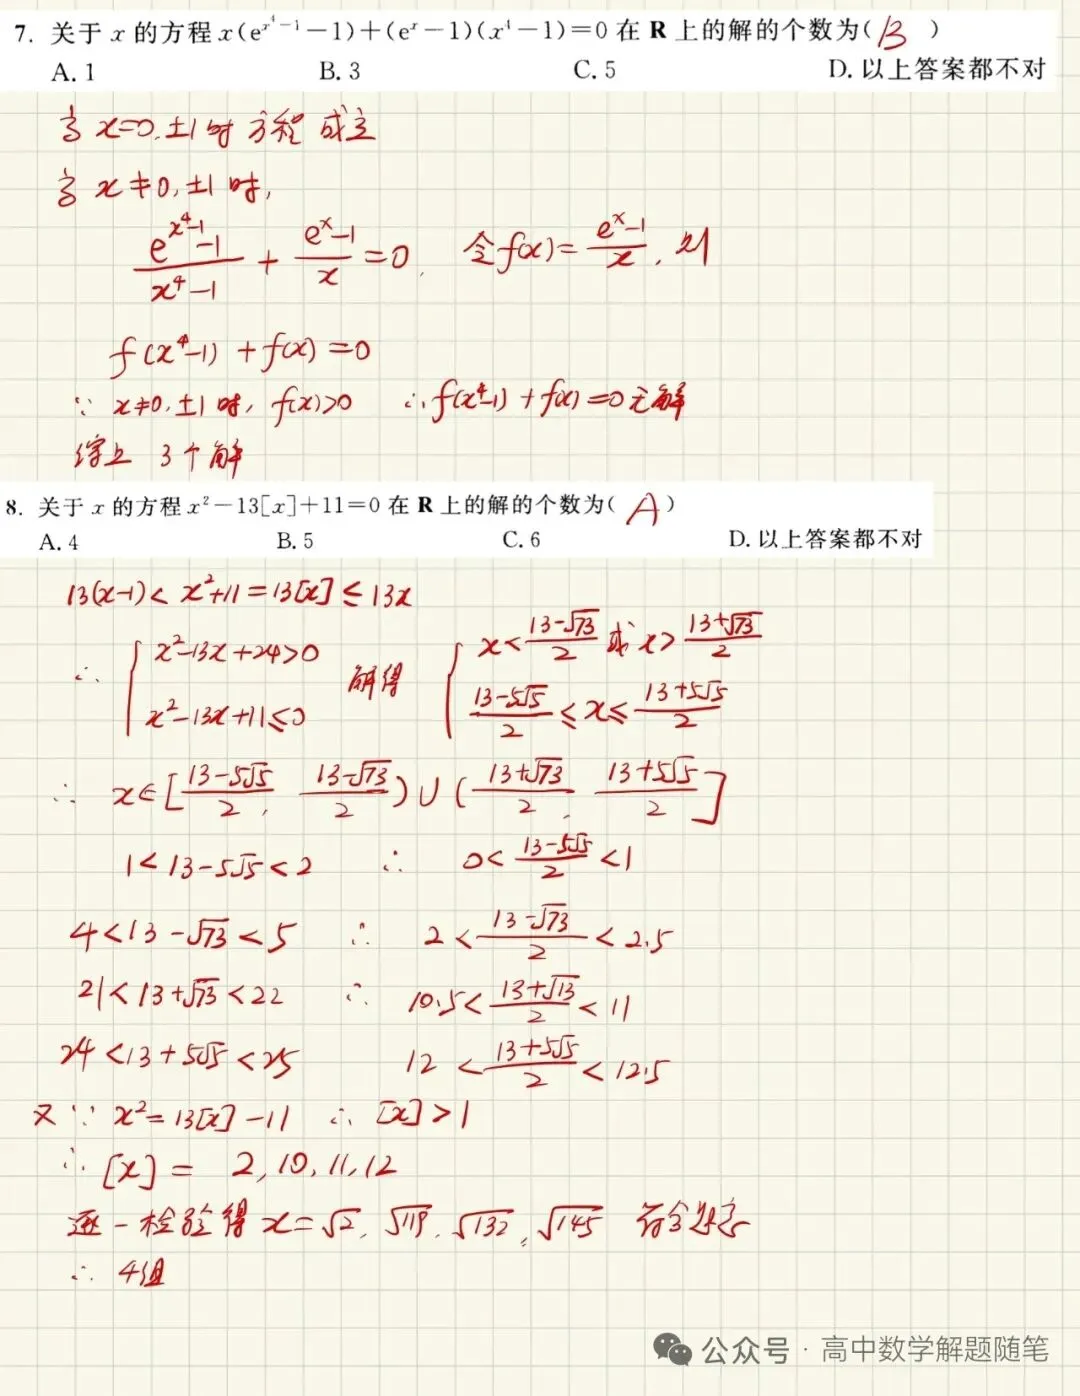 7. 关于 x 的方程 x(e^{x⁴-1}-1)+(eˣ-1)(x⁴-1)=0 在 R 上的解的个数为( B )
A. 1 B. 3 C. 5 D. 以上答案都不对
当 x=0, ±1 时 方程 成立
当 x≠0, ±1 时,
(e^{x⁴-1}-1)/(x⁴-1) + (eˣ-1)/x = 0, 令 f(x) = (eˣ-1)/x, 则
f(x⁴-1) + f(x) = 0
∵ x≠0, ±1 时, f(x)>0 ∴ f(x⁴-1) + f(x) = 0 无解
综上 3个解
8. 关于 x 的方程 x²-13[x]+11=0 在 R 上的解的个数为( A )
A. 4 B. 5 C. 6 D. 以上答案都不对
13(x-1) < x²+11 = 13[x] ≤ 13x
∴ { x²-13x+24>0 x²-13x+11≤0 解得 { x < (13-√73)/2 或 x > (13+√73)/2 (13-5√5)/2 ≤ x ≤ (13+5√5)/2
∴ x∈[(13-5√5)/2, (13-√73)/2) ∪ ((13+√73)/2, (13+5√5)/2]
1 < 13-5√5 < 2 ∴ 0 < (13-5√5)/2 < 1
4 < 13-√73 < 5 ∴ 2 < (13-√73)/2 < 2.5
21 < 13+√73 < 22 ∴ 10.5 < (13+√13)/2 < 11
24 < 13+5√5 < 25 12 < (13+5√5)/2 < 12.5
又 ∵ x² = 13[x]-11 ∴ [x] > 1
∴ [x] = 2, 10, 11, 12
逐一检验得 x = √2, √119, √132, √145 符合题意
∴ 4组
公众号 · 高中数学解题随笔